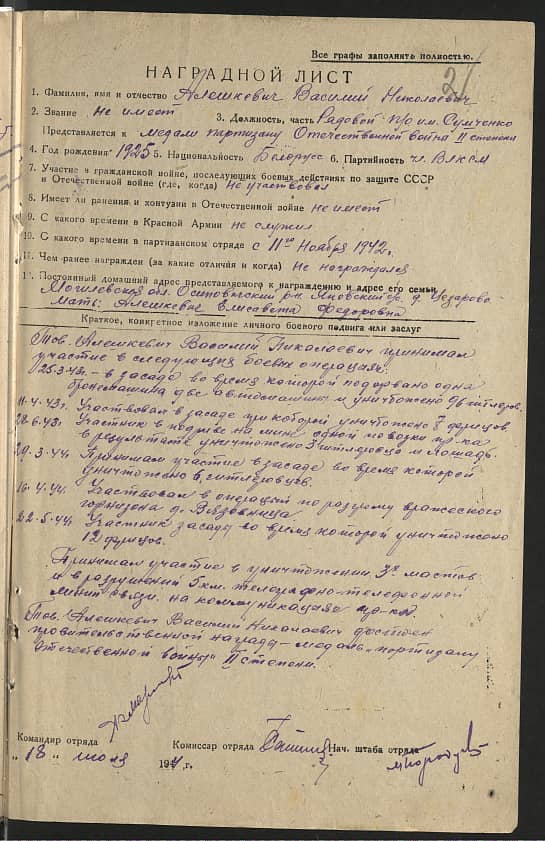 Все графы заполнять полностью.
2
НАГРАДНОЙ ЛИСТ
1. Фамилия, имя и отчество Алешкевич Василий Николаевич
2. Звание не имеет 3. Должность, часть Рядовой п/о им. Сумченко
Представляется к медали партизану Отечественной война II степени
4. Год рождения 1925 5. Национальность Белорусс 6. Партийность чл. ВЛКСМ
7. Участие в гражданской войне, последующих боевых действиях по защите СССР
и Отечественной войне (где, когда) Не участвовал
8. Имеет ли ранения и контузии в Отечественной войне не имеет
9. С какого времени в Красной Армии не служил
10. С какого времени в партизанском отряде с 11го Ноября 1942г.
11. Чем ранее награжден (за какие отличия и когда) Не награждался
Постоянный домашний адрес представляемого к награждению и адрес его семьи
Могилевская обл. Осиповичский р-н. Яновский д. Цезарово
мать: Алешкевич Елисавета Федоровна
Краткое, конкретное изложение личного боевого подвига или заслуг
Тов. Алешкевич Василий Николаевич принимал
участие в следующих боевых операциях:
25.3.43г. – в засаде во время которой подорвано одна
бронемашина две автомашины и уничтожено гитлеров.
11.4.43г. Участвовал в засаде при которой уничтожено 8 фрицов
28.6.43г. Участник в подрыве на мине одной повозки пр-ка
в результате уничтожено 3 гитлеровца и лошадь.
29.3.44 Принимал участие в засаде во время которой
уничтожено 6 гитлеровцов.
16.4.44. Участвовал в операции по разгрому вражеского
гарнизона д. Вязовница
22.5.44 Участник засады во время которой уничтожено
12 фрицов.
Принимал участие в уничтожении 3х мостов
и в разрушении 5 км. телеграфно-телефонной
линии связи на коммуникациях пр-ка.
Тов. Алешкевич Василий Николаевич достоен
правительственной награды – медаль "партизану
Отечественной войны" II степени.
Командир отряда Комиссар отряда Нач. штаба отряда
„ 18 „ июня 1944 г.